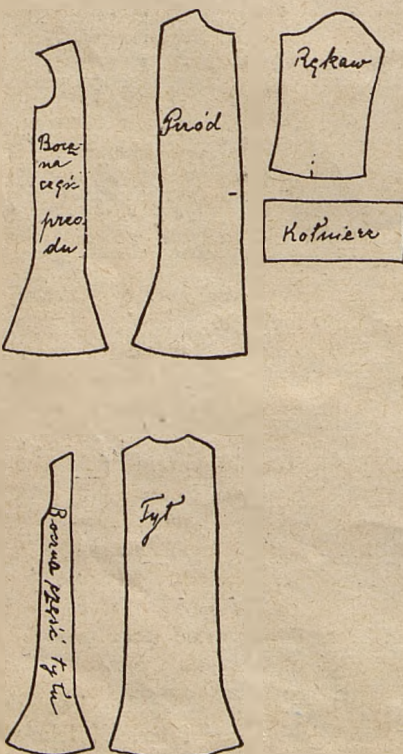 Bocz-
na
część
przo-
du
Przód
Rękaw
Kołnierz
Boczna część tyłu
Tył